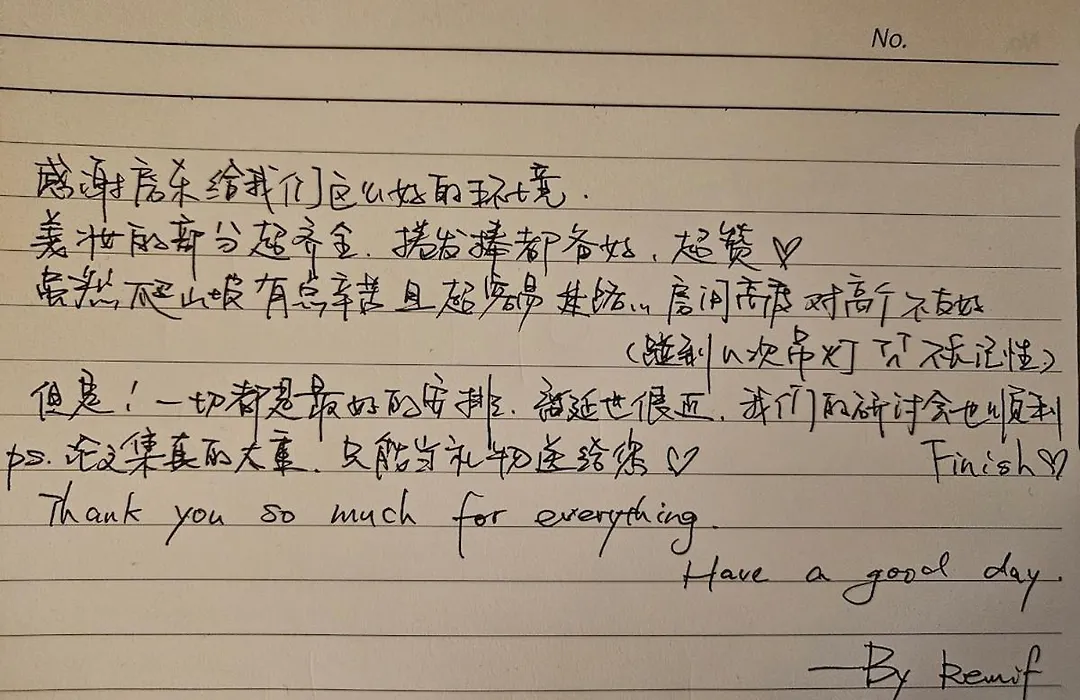 No.
感谢房东给我们这么好的环境.
美妆的部分超齐全. 捲发棒都备好, 超赞♡
虽然爬山坡有点辛苦且超容易 房间高度对高个不友好
(碰到n次吊灯 不长记性)
但是！一切都是最好的安排. 也很近. 我们的研讨会也顺利
Finish♡
ps. 论文集真的太重. 只能当礼物送给您♡
Thank you so much for everything.
Have a good day.
—By